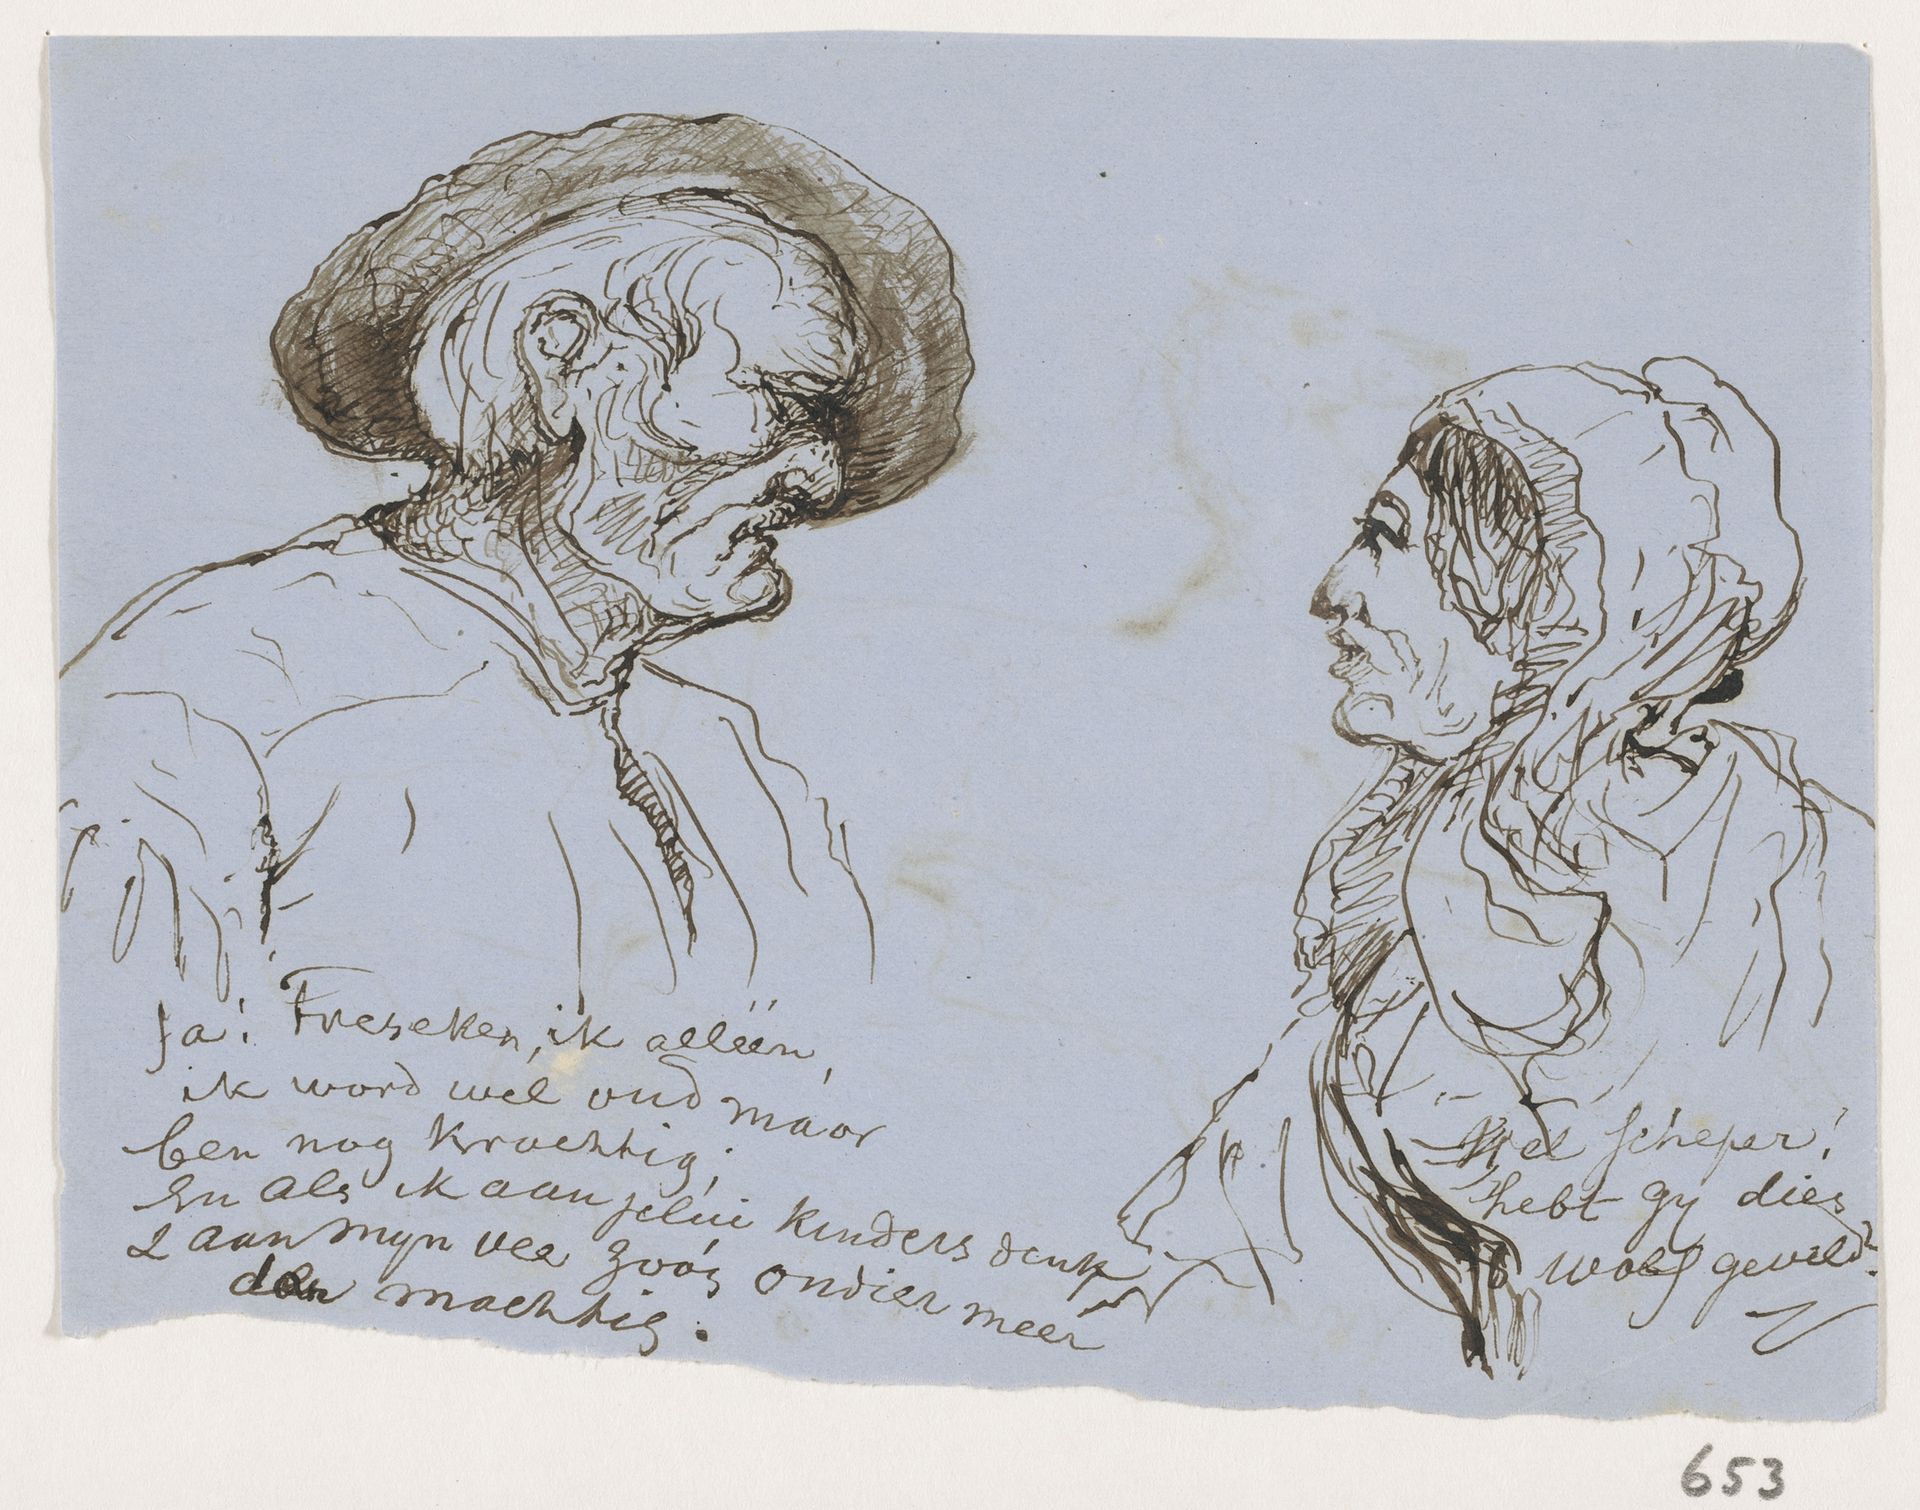 Ja! Freseken, ik alléén,
ik word wel oud maar
ben nog krachtig;
En als ik aan jelui kinders denk
& aan myn vee zoo's ondier meer
dan machtig.
Wel scheper!
hebt gy dies
wolf geveld?
653